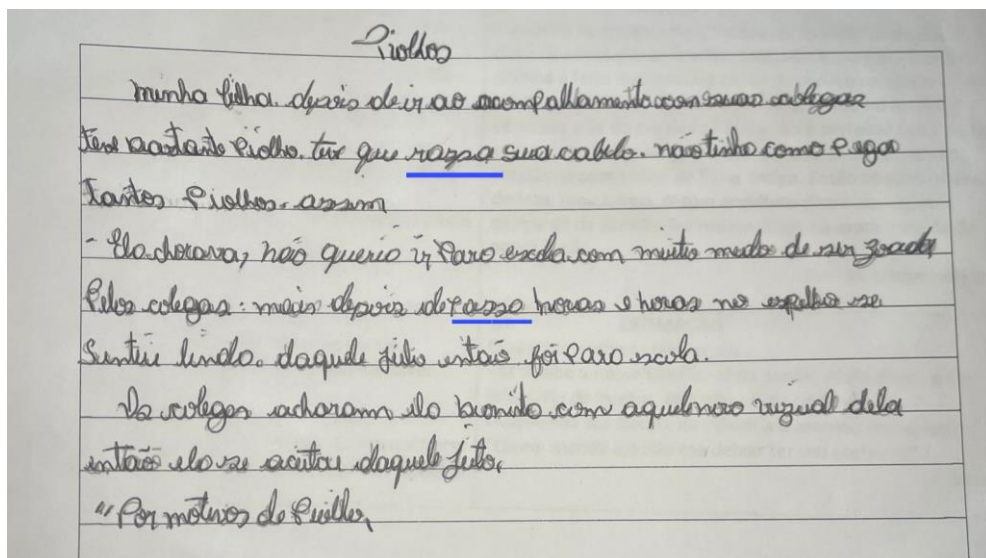 Piolhos
minha filha. depois de ir ao acompallamento com suas colegas
teve bastante Piolho. tive que raspa sua cabelo. não tinha como Pega
tantos Piolhos. assim
- Ela chorava, não queria ir Para escola com muito medo de ser zoada
Pelos colegas: mais depois de passo horas e horas no espelho se
Sentiu linda. daquele jeito então foi Para escola.
Os colegas acharam ela bonita com aquele novo vizual dela
então ela se aceitou daquele jeito,
"Por motivos de Piolho,